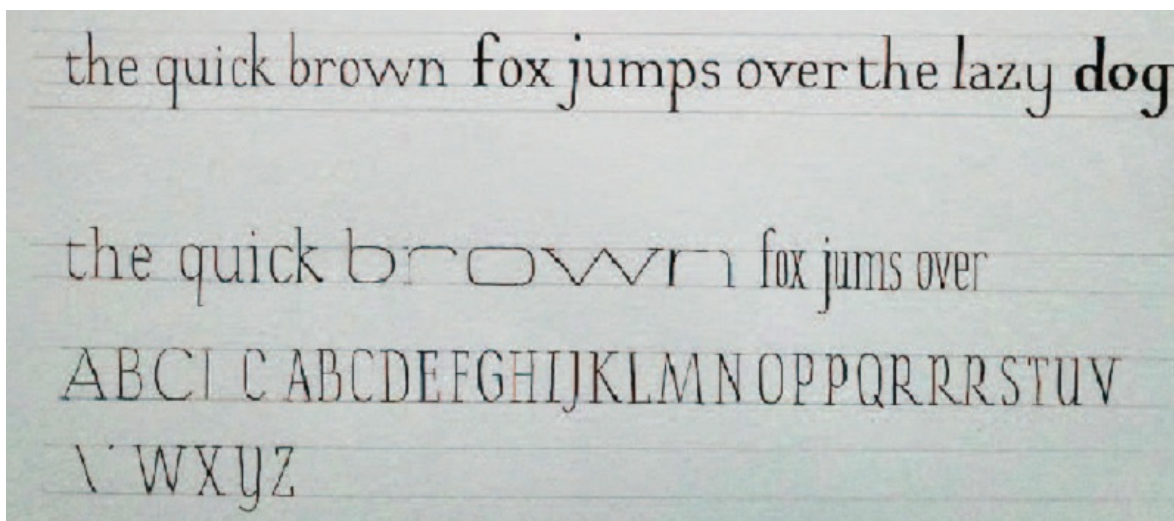 the quick brown fox jumps over the lazy dog
the quick brown fox jums over
ABCI C ABCDEFGHIJKLMNOPPQRRRSTUV
\ WXYZ